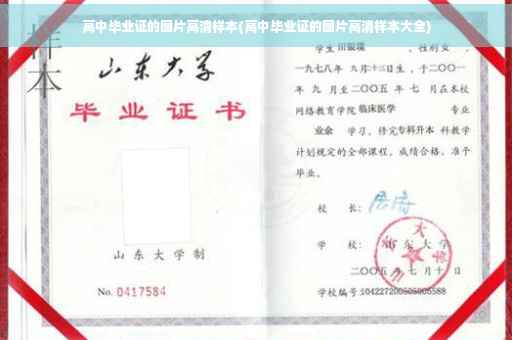 高中毕业证的图片高清样本(高中毕业证的图片高清样本大全)
样本
山东大学
毕业证书
山东大学制
No. 0417584
学生 田银瑞 ，性别女，
一九七八年 九月十三日生，于二〇〇一
年 九 月至二〇〇五 年 七 月在本校
网络教育学院 临床医学 专业
业余 学习，修完专科升本 科教学
计划规定的全部课程，成绩合格，准予
毕业。
校 长:
学 校: 山东大学
二〇〇五年七月十日
学校编号:104227200505005588